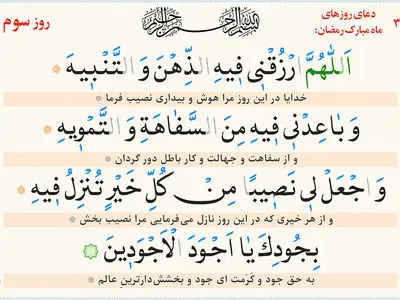 دعای روزهای
ماه مبارک رمضان:
۳
بسم الله الرحمن الرحیم
روز سوم
اَللّٰهُمَّ ارْزُقْنی فیهِ الذِّهْنَ وَ التَّنْبیهَ
خدایا در این روز مرا هوش و بیداری نصیب فرما
وَ باعِدْنی فیهِ مِنَ السَّفاهَةِ وَ التَّمْویهِ
و از سفاهت و جهالت و کار باطل دور گردان
وَ اجْعَلْ لی نَصیبًا مِنْ کُلِّ خَیْرٍ تُنْزِلُ فیهِ
و از هر خیری که در این روز نازل می‌فرمایی مرا نصیب بخش
بِجُودِكَ یا اَجْوَدَ الْاَجْوَدینَ
به حق جود و کرَمت ای جود و بخشش‌دارترینِ عالم